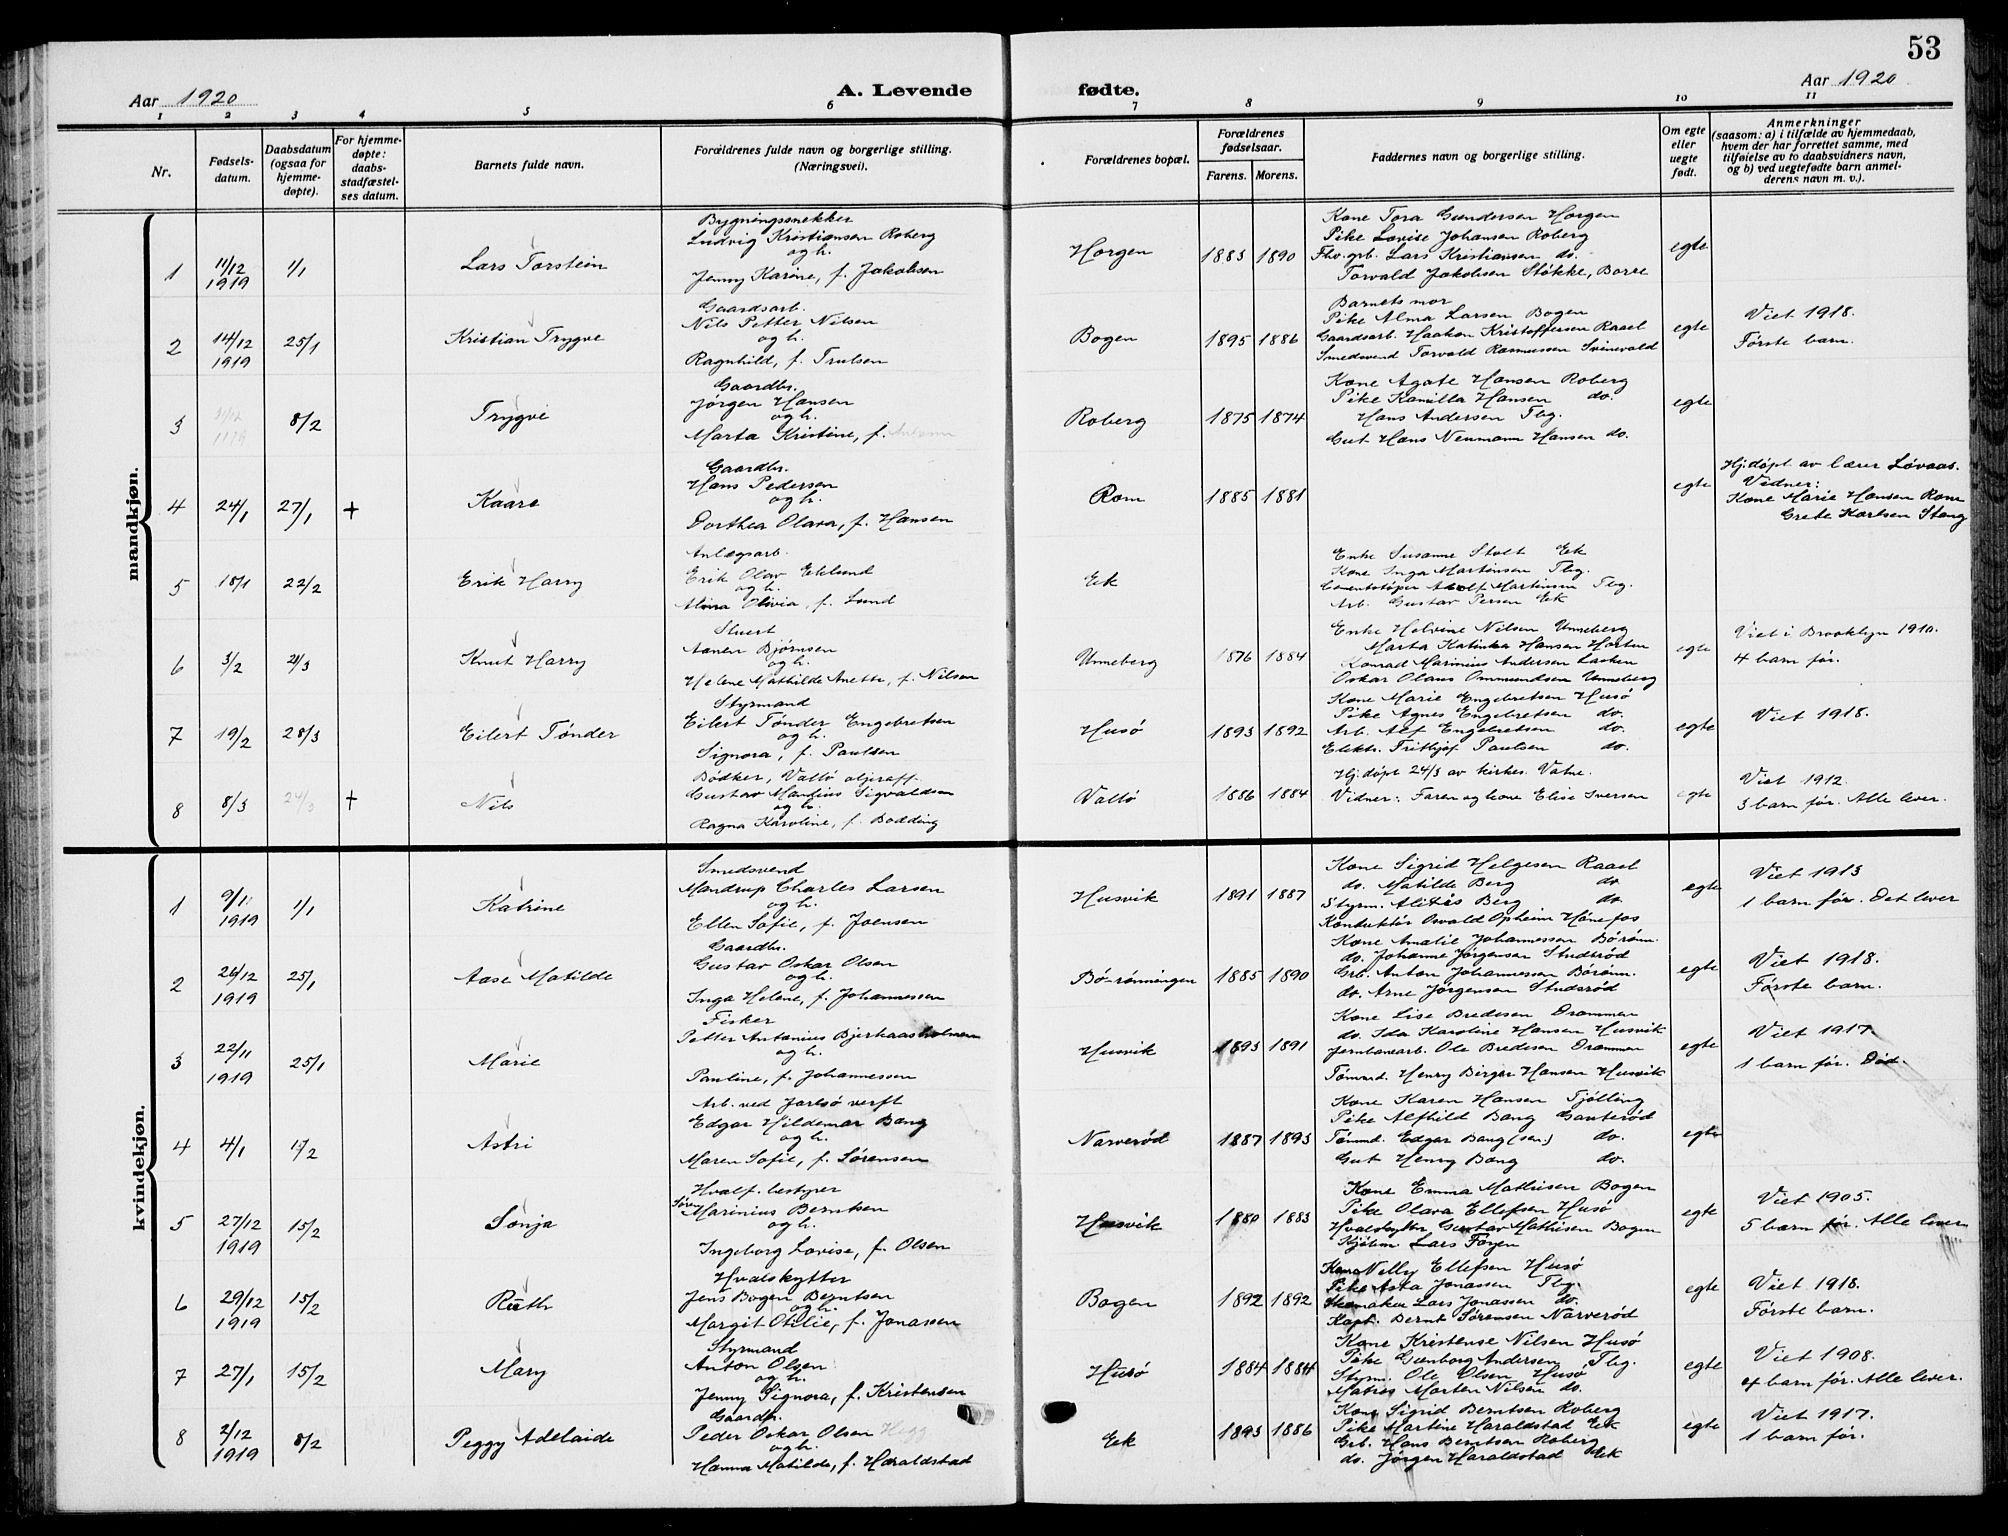 53
Aar 1920 A. Levende fødte. Aar 1920
1 2 3 4 5 6 7 8 9 10 11
Nr.
Fødsels-
datum.
Daabsdatum
(ogsaa for
hjemme-
døpte).
For hjemme-
døpte:
daabs-
stadfæstel-
ses datum.
Barnets fulde navn.
Forældrenes fulde navn og borgerlige stilling.
(Næringsvei).
Forældrenes bopæl.
Forældrenes
fødselsaar.
Farens. Morens.
Faddernes navn og borgerlige stilling.
Om egte
eller
uegte
født.
Anmerkninger
(saasom: a) i tilfælde av hjemmedaab,
hvem der har forrettet samme, med
tilføielse av to daabsvidners navn,
og b) ved uegtefødte barn anmel-
derens navn m. v.).
mandkjøn.
1
11/12
1919
1/1
Lars Torstein
Bygningssnekker
Ludvig Kristiansen Roberg
og h.
Jenny Karine, f. Jakobsen
Horgen
1883 1890
Kone Tora Gundersen Horgen
Pike Lovise Johansen Roberg
Fhv. grb. Lars Kristiansen do.
Torvald Jakobsen Støkke, Borre
egte
2
14/12
1919
25/1
Kristian Trygve
Gaardsarb.
Nils Petter Nilsen
og h.
Ragnhild, f. Trulsen
Bogen
1895 1886
Barnets mor
Pike Alma Larsen Bogen
Gaardsarb. Haakon Kristoffersen Raael
Smedsvend Torvald Rasmussen Svinevold
egte
Viet 1918.
Første barn.
3
8/2
Trygve
Gaardbr.
Jørgen Hansen
og h.
Marta Kristine, f.
Roberg
1875 1874
Kone Agate Hansen Roberg
Pike Kamilla Hansen do.
Hans Andersen Tbg.
Gut Hans Neumann Hansen do.
egte
4
24/1
27/1
+
Kaare
Gaardbr.
Hans Pedersen
og h.
Dorthea Olava, f. Hansen
Rom
1885 1881
egte
Hj. døpt av lærer Løvaas.
Vidner:
Kone Marie Hansen Rom
Grete Karlsen Stang
5
18/1
22/2
Erik Harry
Anlægsarb.
Erik Olav Eklund
og h.
Alvina Olivia, f. Lund
Eek
Enke Susanne Stolt Eek
Kone Inga Martinsen Tbg.
Cementstøper Adolf Martinsen Tbg.
Arb. Gustav Persen Eek
6
3/2
21/3
Knut Harry
Stuert
Aanen Bjørnsen
og h.
Helene Mathilde Anette, f. Nilsen
Unneberg
1876 1884
Enke Helvine Nilsen Unneberg
Marta Katinka Hansen Horten
Konrad Marinius Andersen Lasken
Oskar Olaus Ommundsen Unneberg
egte
Viet i Brooklyn 1910.
4 barn før.
7
19/2
28/3
Eilert Tønder
Styrmand
Eilert Tønder Engebretsen
og h.
Signora, f. Paulsen
Husø
1893 1892
Kone Marie Engebretsen Husø
Pike Agnes Engebretsen do.
Arb. Alf Engebretsen do.
Elektr. Frithjof Paulsen do.
egte
Viet 1918.
8
8/3
24/3
+
Nils
Bødker, Vallø oljeraff.
Gustav Mantius Sigvaldsen
og h.
Ragna Karoline, f. Bodding
Vallø
1886 1884
Hj. døpt 24/3 av kirkes. Vatne.
Vidner: Faren og kone Elise Iversen
egte
Viet 1912.
3 barn før. Alle lever.
kvindekjøn.
1
9/11
1919
1/1
Katrine
Smedsvend
Mandrup Charles Larsen
og h.
Ellen Sofie, f. Joensen
Husvik
1891 1887
Kone Sigrid Helgesen Raael
do. Matilde Berg do.
Styrm. Alitås Berg do.
Konduktør Osvald Opheim Hønefos
egte
Viet 1913
1 barn før. Det lever
2
26/12
1919
25/1
Aase Matilde
Gaardbr.
Gustav Oskar Olsen
og h.
Inga Helene, f. Johannessen
Bø-rønningen
1885 1890
Kone Amalie Johannessen Børønn.
do. Johanne Jørgensen Studsrød
Grb. Anton Johannessen Børønn.
do. Arne Jørgensen Studsrød
egte
Viet 1918.
Første barn.
3
22/11
1919
25/1
Marie
Fisker
Petter Antonius Bjerkaasholmen
og h.
Pauline, f. Johannessen
Husvik
1893 1891
Kone Lise Bredesen Drammen
do. Ida Karoline Hansen Husvik
Jernbanearb. Ole Bredesen Drammen
Tømmd. Henry Birger Hansen Husvik
egte
Viet 1917
1 barn før. Død.
4
4/1
15/2
Astri
Arb. ved Jarlsø verft
Edgar Hildemar Bang
og h.
Maren Sofie, f. Sørensen
Narverød
1887 1893
Kone Karen Hansen Tjølling
Pike Alfhild Bang Ganterød
Tømmd. Edgar Bang (sen.) do.
Gut Henry Bang do.
egte
5
27/12
1919
15/2
Sonja
Hvalf. bestyrer
Søren Marinius Berntsen
og h.
Ingeborg Lovise, f. Olsen
Husvik
1880 1883
Kone Emma Mathisen Bogen
Pike Olava Ellefsen Husø
Hvalskytter Gustav Mathisen Bogen
Kjøbm. Lars Foyen
egte
Viet 1905.
5 barn før. Alle lever
6
29/12
1919
15/2
Ruth
Hvalskytter
Jens Bogen Berntsen
og h.
Margit Otilie, f. Jonassen
Bogen
1892 1892
Kone Nelly Ellefsen Husø
Pike Asta Jonassen Tbg.
Skomaker Lars Jonassen do.
Kapt. Bernt Sørensen Narverød
egte
Viet 1918.
Første barn.
7
27/1
15/2
Mary
Styrmand
Anton Olsen
og h.
Jenny Signora, f. Kristensen
Husø
1884 1884
Kone Kristense Nilsen Husø
Pike Gunborg Andersen Tbg.
Styrm. Ole Olsen Husø
Matros Morten Nilsen do.
egte
Viet 1908.
4 barn før. Alle lever.
8
2/12
1919
8/2
Peggy Adelaide
Gaardbr.
Peder Oskar Olsen Hegg
og h.
Hanna Matilde, f. Haraldstad
Eek
1893 1886
Kone Sigrid Berntsen Roberg
Pike Martine Haraldstad Eek
Grb. Hans Berntsen Roberg
do. Jørgen Haraldstad Eek
egte
Viet 1917.
1 barn før.